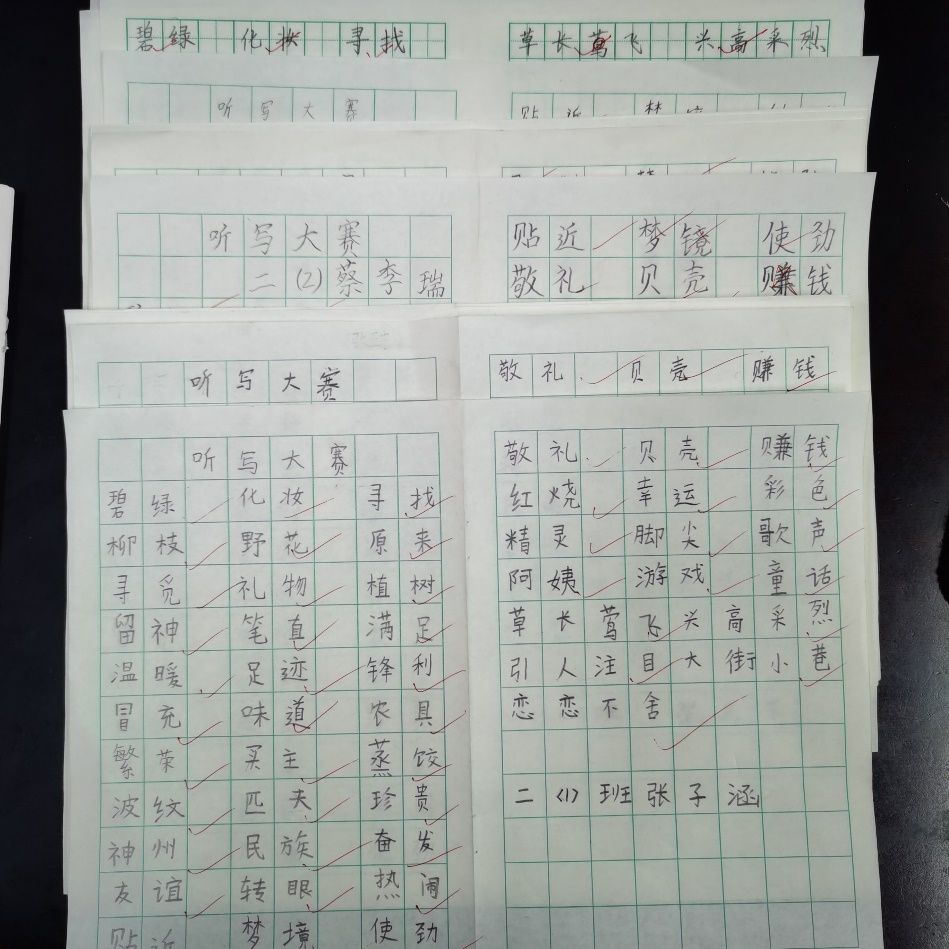 碧绿 化妆 寻找
草长莺飞 兴高采烈
听写大赛
贴近
听写大赛
二(2)蔡李瑞
贴近 梦镜 使劲
敬礼 贝壳 赚钱
听写大赛
敬礼 贝壳 赚钱
听写大赛
碧绿 化妆 寻找
柳枝 野花 原来
寻觅 礼物 植树
留神 笔直 满足
温暖 足迹 锋利
冒充 味道 农具
繁荣 买主 蒸饺
波纹 匹夫 珍贵
神州 民族 奋发
友谊 转眼 热闹
贴近 梦境 使劲
敬礼 贝壳 赚钱
红烧 幸运 彩色
精灵 脚尖 歌声
阿姨 游戏 童话
草长莺飞兴高采烈
引人注目大街小巷
恋恋不舍
二(1)班张子涵